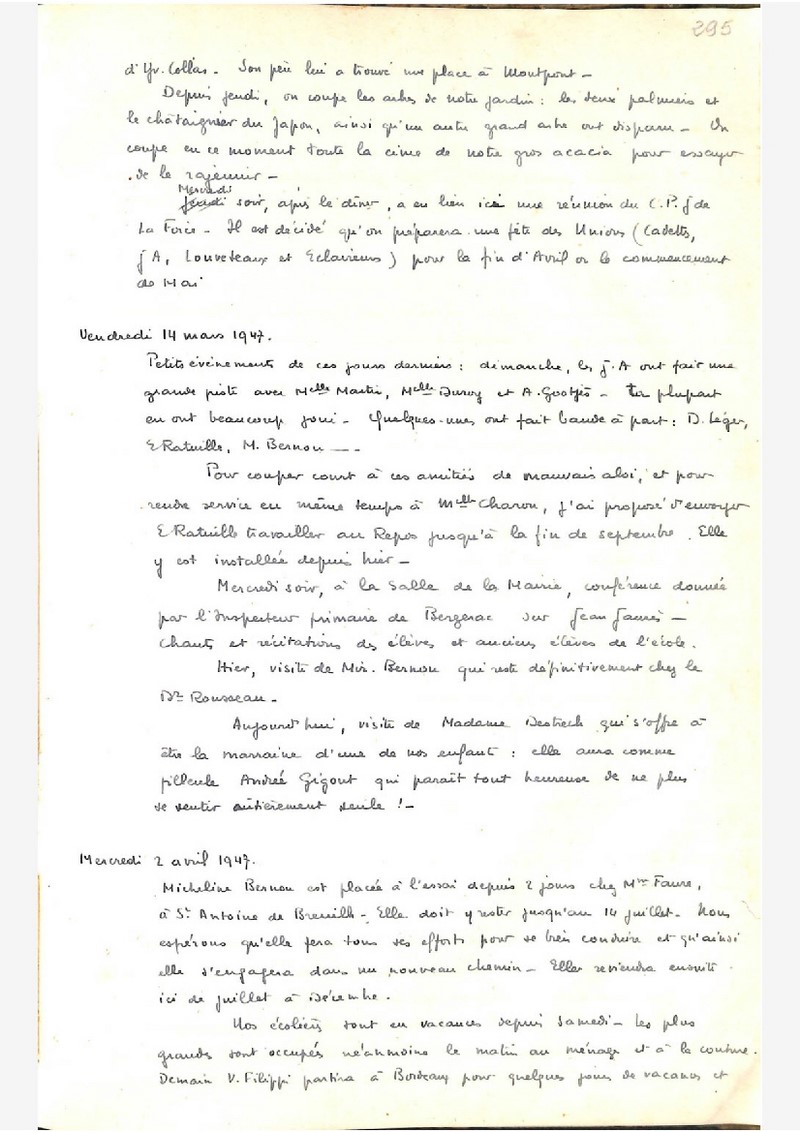 295
d'Yv. Collas. Son père lui a trouvé une place à Montpont -
Depuis jeudi, on coupe les arbres de notre jardin : les deux palmiers et
le châtaignier du Japon, ainsi qu'un autre grand arbre ont disparu - On
coupe en ce moment toute la cime de notre gros acacia pour essayer
de le rajeunir -
Mercredi
jeudi soir, après le dîner, a eu lieu ici une réunion du C.P. J de
La Force - Il est décidé qu'on préparera une fête des Unions (Cadettes,
J A, Louveteaux et Eclaireurs) pour la fin d'Avril or le commencement
de Mai
Vendredi 14 mars 1947.
Petits événements de ces jours derniers : dimanche, les J.A ont fait une
grande piste avec Melle Martin, Melle et A. - La plupart
en ont beaucoup joui - Quelques-unes ont fait bande à part : D. Léger,
E Ratuille, M. Bernou -
Pour couper court à ces amitiés de mauvais aloi, et pour
rendre service en même temps à Melle Charon, j'ai proposé d'envoyer
E Ratuille travailler au Repos jusqu'à la fin de septembre. Elle
y est installée depuis hier -
Mercredi soir, à la Salle de la Mairie, conférence donnée
par l'Inspecteur primaire de Bergerac sur Jean Jaurès -
Chants et récitations des élèves et anciens élèves de l'école.
Hier, visite de Mir. Bernou qui reste définitivement chez le
Dr Rousseau -
Aujourd'hui, visite de Madame qui s'offre à
être la marraine d'une de nos enfants : elle aura comme
filleule Andrée Gigout qui paraît tout heureuse de ne plus
se sentir entièrement seule ! -
Mercredi 2 avril 1947.
Micheline Bernou est placée à l'essai depuis 2 jours chez Mme Faure,
à St Antoine de Breuilh - Elle doit y rester jusqu'au 14 juillet - Nous
espérons qu'elle fera tous ses efforts pour se bien conduire et qu'ainsi
elle s'engagera dans un nouveau chemin - Elle reviendra ensuite
ici de juillet à Décembre.
Nos écoliers sont en vacances depuis samedi - Les plus
grandes sont occupés néanmoins le matin au ménage et à la couture.
Demain V. Filippi partira à Bordeaux pour quelques jours de vacances et